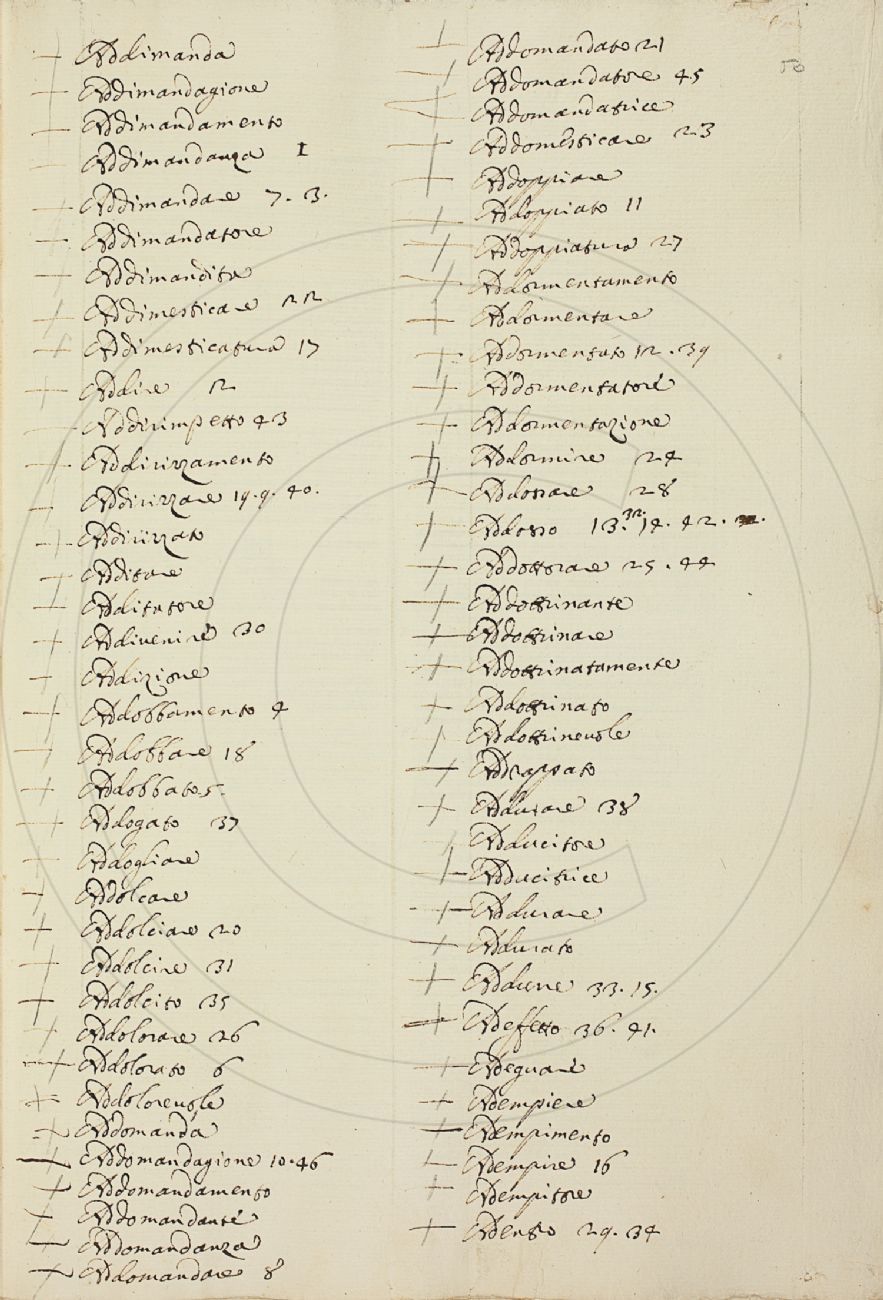 50
Addimanda
Addimandagione
Addimandamento
Addimandanza 1
Addimandare 7. 3.
Addimandatore
Addimandita
Addimesticare 22
Addimesticatura 17
Addire 12
Addirimpetto 43
Addirizzamento
Addirizzare 19. 9. 40.
Addirizzato
Additare
Additatore
Addivenire 30
Addizione
Addobbamento 4
Addobbare 18
Addobbato 5.
Addogato 37
Addogliare
Addolcare
Addolciare 20
Addolcire 31
Addolcito 35
Addolorare 26
Addolorato 6
Addolorevole
Addomanda
Addomandagione 10. 46
Addomandamento
Addomandante
Addomandanza
Addomandare 8
Addomandato 21
Addomandatore 45
Addomandatrice
Addomesticare 23
Addoppiare
Addoppiato 11
Addoppiatura 27
Addormentamento
Addormentare
Addormentato 12. 39
Addormentatore
Addormentazione
Addormire 24
Addossare 28
Addosso 13. 32. 14. 42.
Addottorare 25. 44
Addottrinante
Addottrinare
Addottrinatamente
Addottrinato
Addottrinevole
Addrappato
Addurare 38
Adducitore
Adducitrice
Addurare
Addurato
Addurre 33. 15.
Adeffetto 36. 41.
Adeguare
Adempiere
Adempimento
Adempire 16
Adempitore
Adentro 29. 34